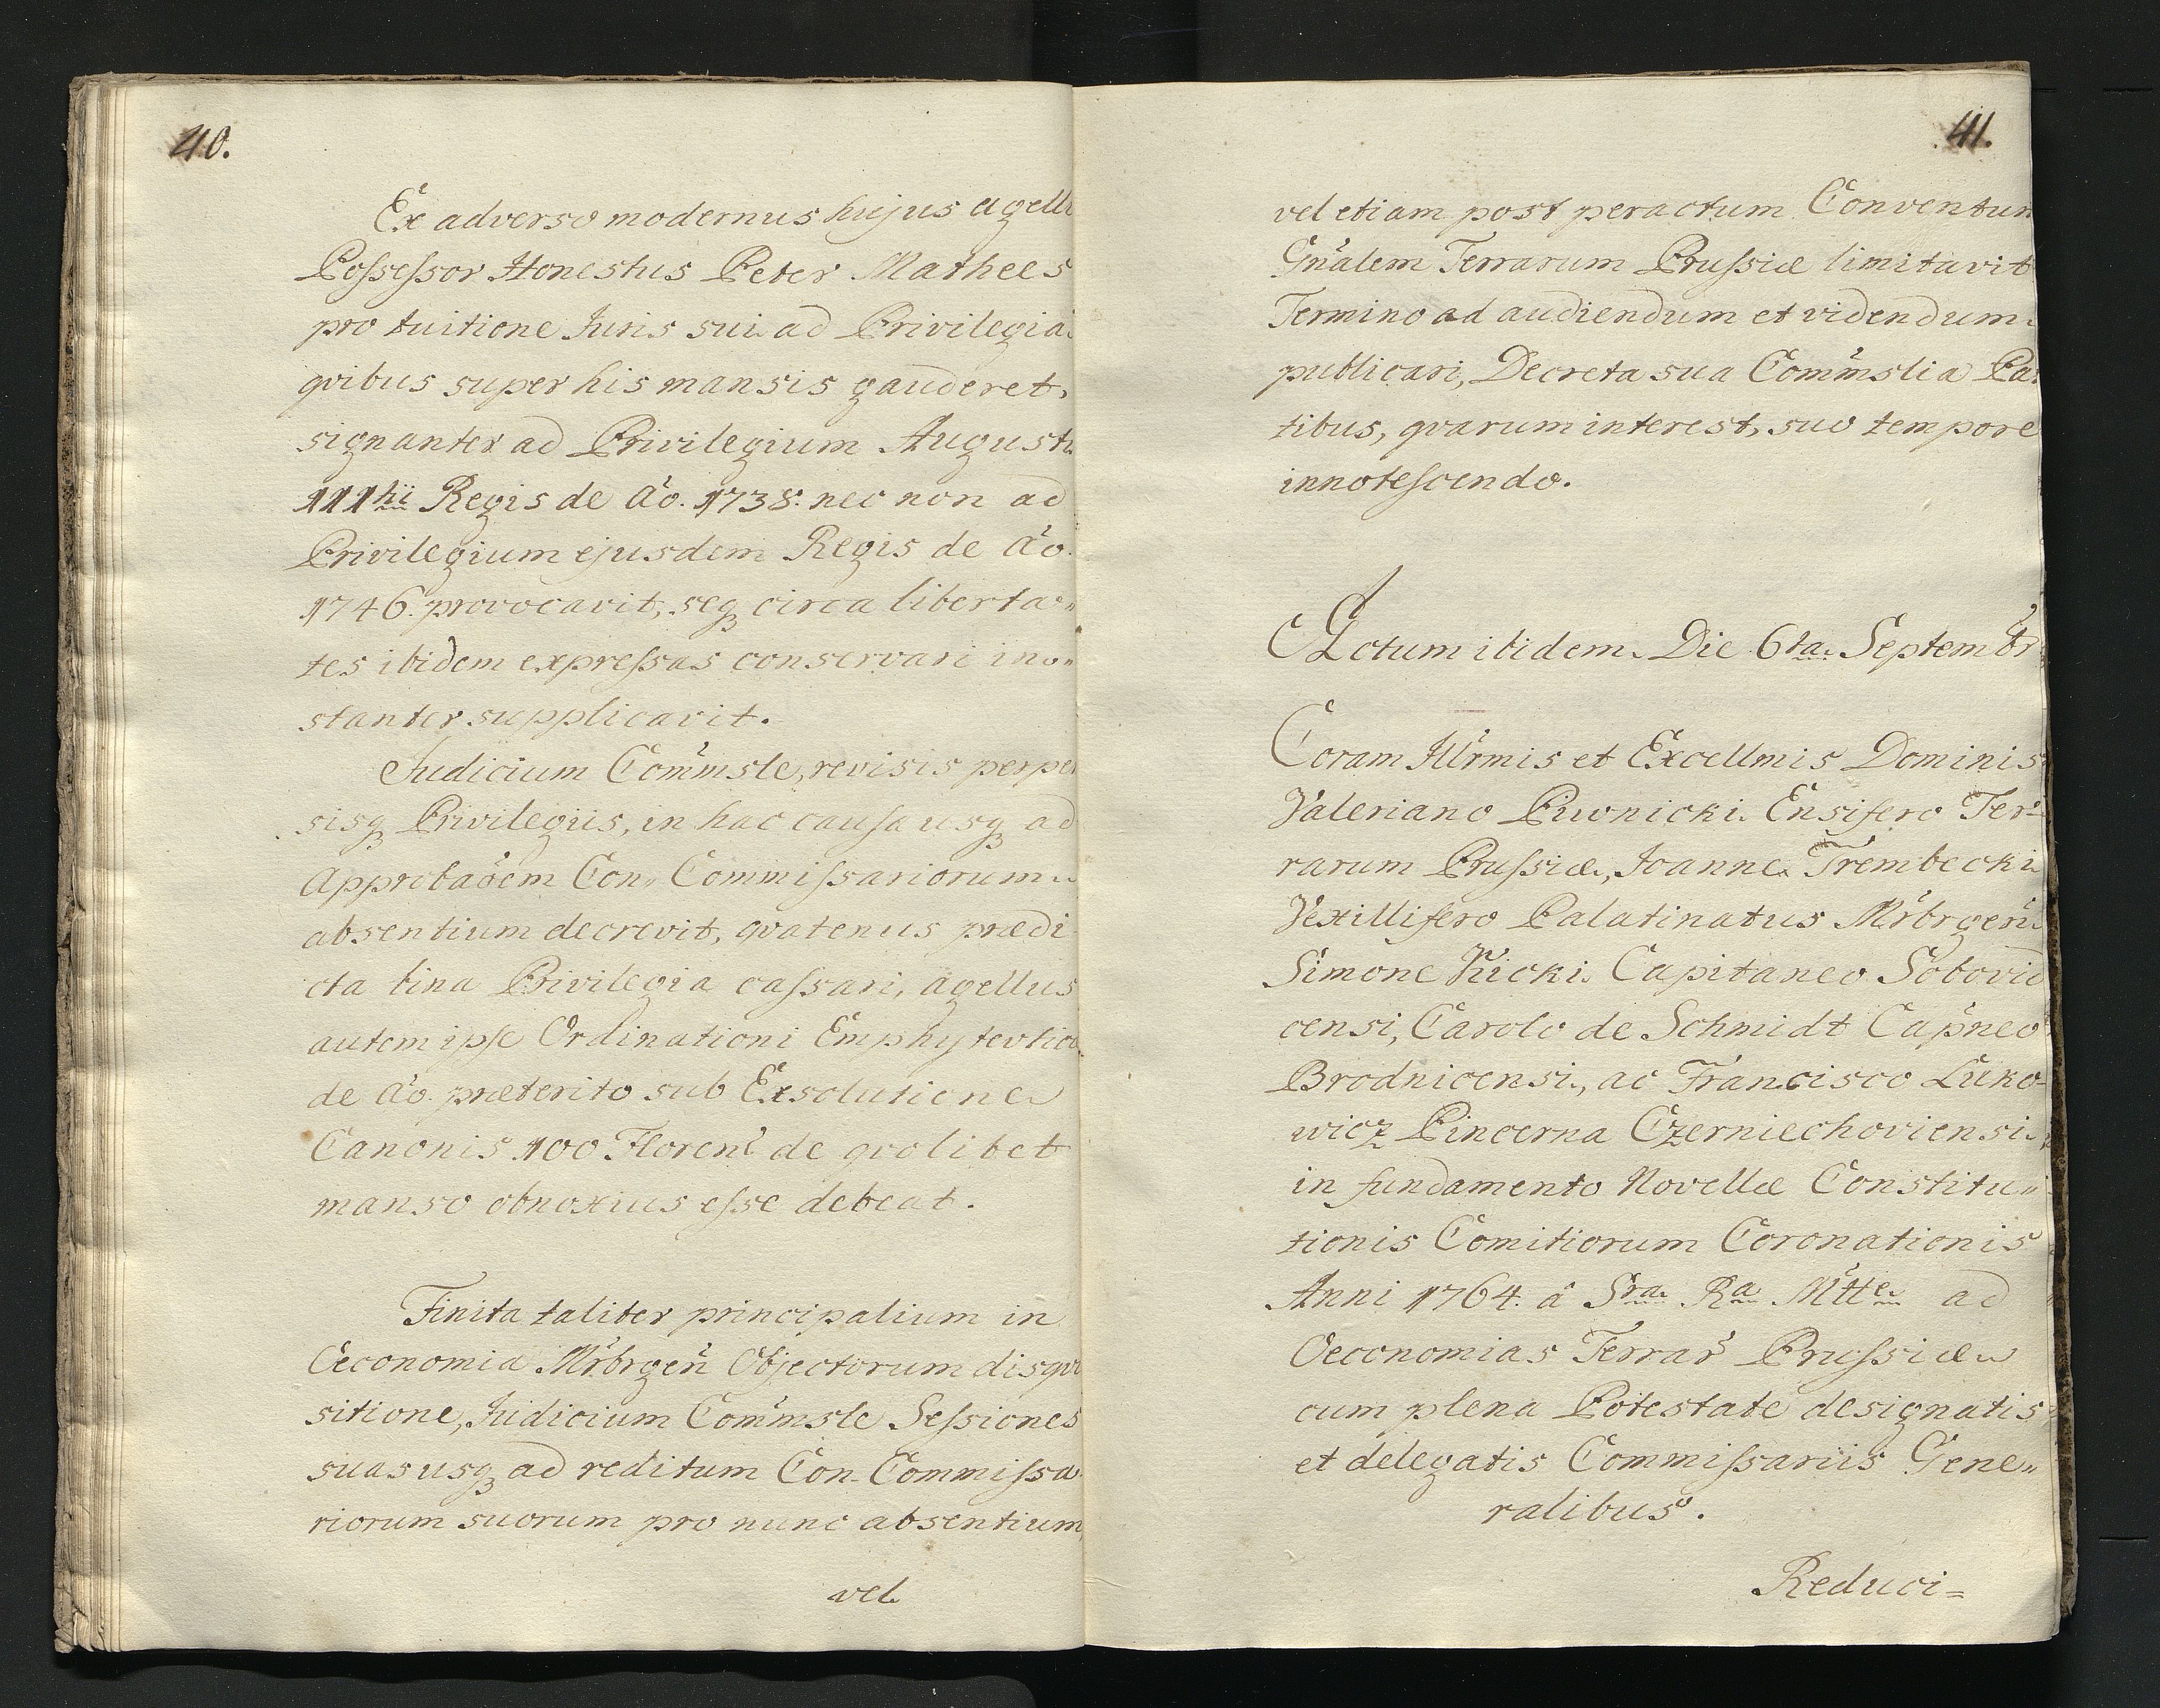 40.
Ex adverso modernus hujus agelli
Possessor Honestus Peter Mathees
pro tuitione Juris sui ad Privilegia
qvibus super his mansis gauderet,
signanter ad Privilegium Augusti
IIItii Regis de Ao. 1738. nec non ad
Privilegium ejusdem Regis de Ao.
1746. provocavit, seq circa liberta„
tes ibidem expressas conservari in„
stanter supplicavit.
Judicium Commsle, revisis perpen
sisq Privilegiis, in hac causa usq ad
Approbaoem Con„ Commissariorum
absentium decrevit, qvatenus prædi
cta bina Privilegia cassari, agellus
autem ipse Ordinationi Emphytevticæ
de Ao. præterito sub Exsolutione
Canonis 100 Floren de qvolibet
manso obnoxius esse debeat.
Finita taliter principalium in
Oeconomia Mrbrgen Objectorum disqvi
sitione, Judicium Commsle Sessiones
suas usq ad reditum Con-Commissa
riorum suorum pro nunc absentium,
vel
41.
vel etiam post peractum Conventum
Gnalem Terrarum Prussiæ limitavit
Termino ad audiendum et videndum
publicari, Decreta sua Commslia Par
tibus, qvarum interest, suo tempore
innotescendo.
Actum ibidem Die 6ta Septembr
Coram Illrmis et Excellmis Dominis
Valeriano Piwnicki Ensifero Ter-
rarum Prussiæ, Joanne Trembecki
Vexillifero Palatinatus Mrbrgen
Simone Kicki Capitaneo Sobovid
censi, Carolo de Schmidt Capneo
Brodnicensi, ac Francisco Luko-
wicz Pincerna Czerniechoviensi
in fundamento Novellæ Constitu„
tionis Comitiorum Coronationis
Anni 1764. â Sra Ra Mtte ad
Oeconomias Terrar Prussiæ
cum plena Potestate designatis
et delegatis Commissariis Gene„
ralibus.
Reduci=